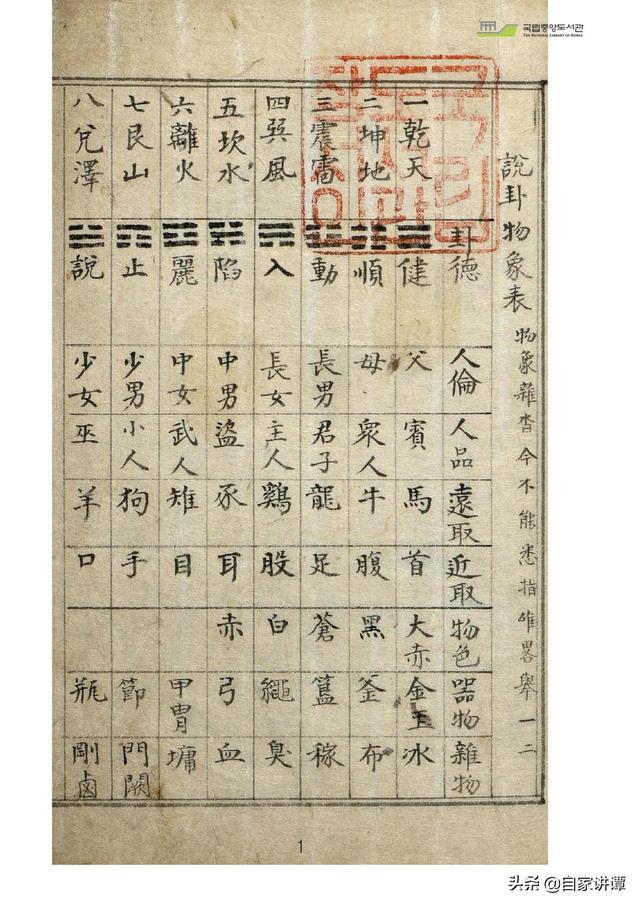 국립중앙도서관
THE NATIONAL LIBRARY OF KOREA
說卦物象表 物象雜沓今不能悉指唯畧舉一二
卦德 人倫 人品 遠取 近取 物色 器物 雜物
一乾天 ☰ 健 父 賓 馬 首 大赤 金玉 冰
二坤地 ☷ 順 母 眾人 牛 腹 黑 釜 布
三震雷 ☳ 動 長男 君子 龍 足 蒼 簋 稼
四巽風 ☴ 入 長女 主人 鷄 股 白 繩 臭
五坎水 ☵ 陷 中男 盜 豕 耳 赤 弓 血
六離火 ☲ 麗 中女 武人 雉 目 甲冑 墉
七艮山 ☶ 止 少男 小人 狗 手 節 門闕
八兌澤 ☱ 說 少女 巫 羊 口 瓶 剛鹵
1
头条 @自家讲谭